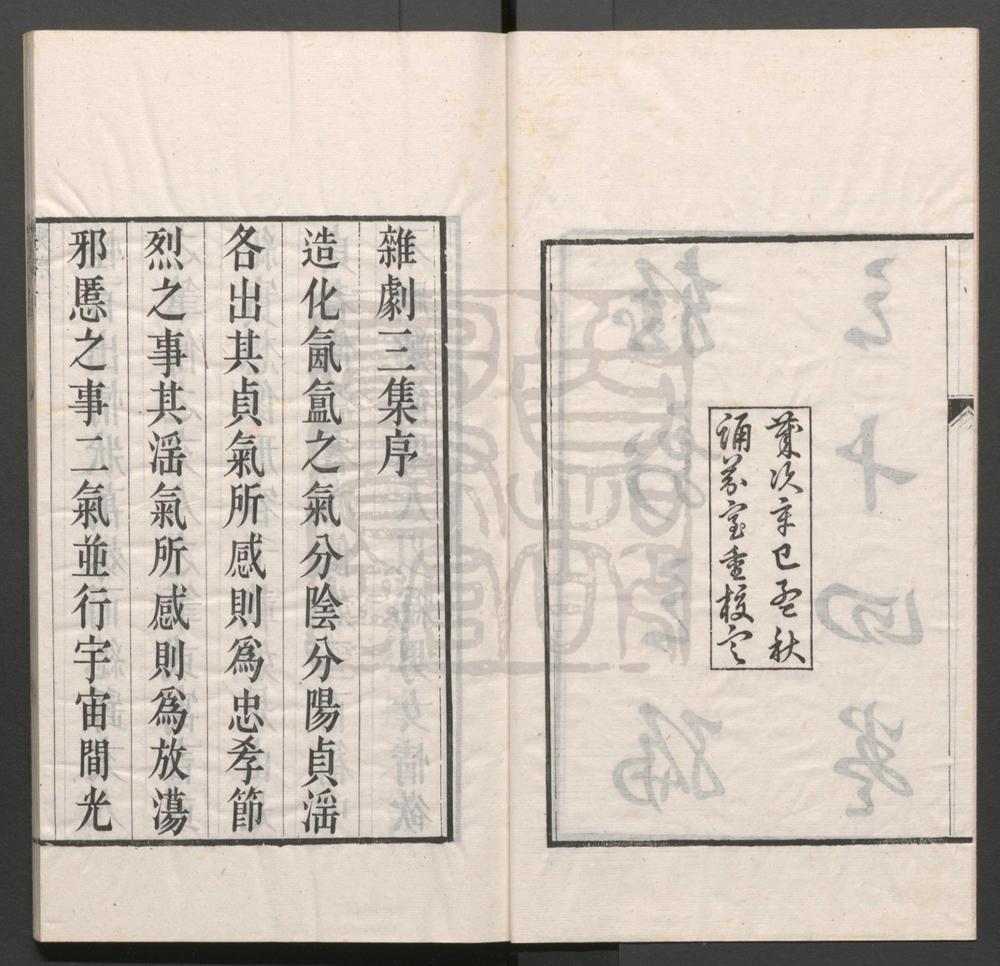 歲次辛巳孟秋
誦芬室重校定
雜劇三集序
造化氤氳之氣分陰分陽貞淫
各出其貞氣所感則爲忠孝節
烈之事其淫氣所感則爲放蕩
邪慝之事二氣並行宇宙間光